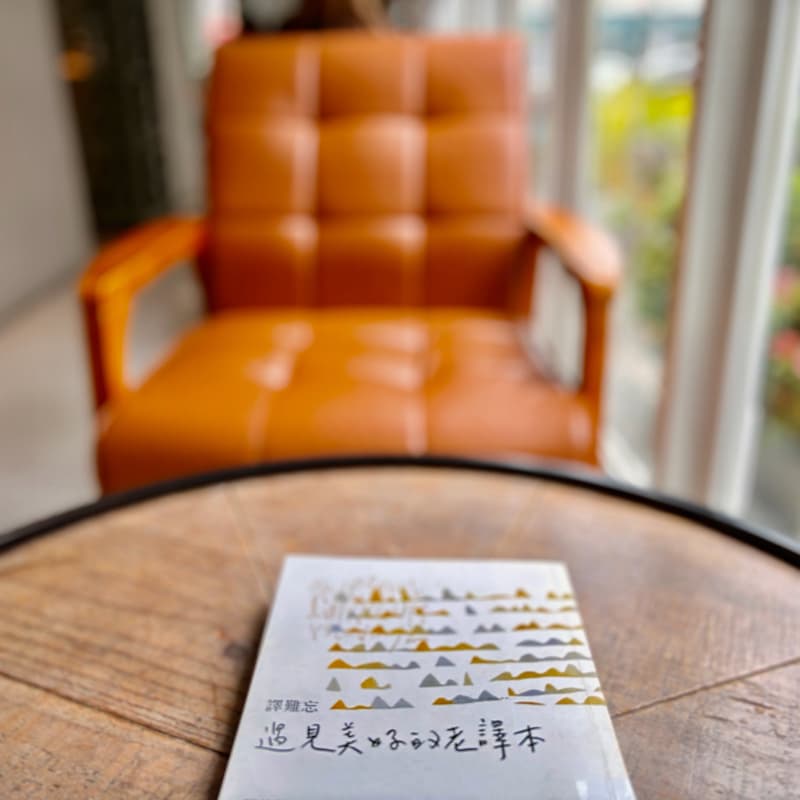 譯難忘
遇見美好的老譯本